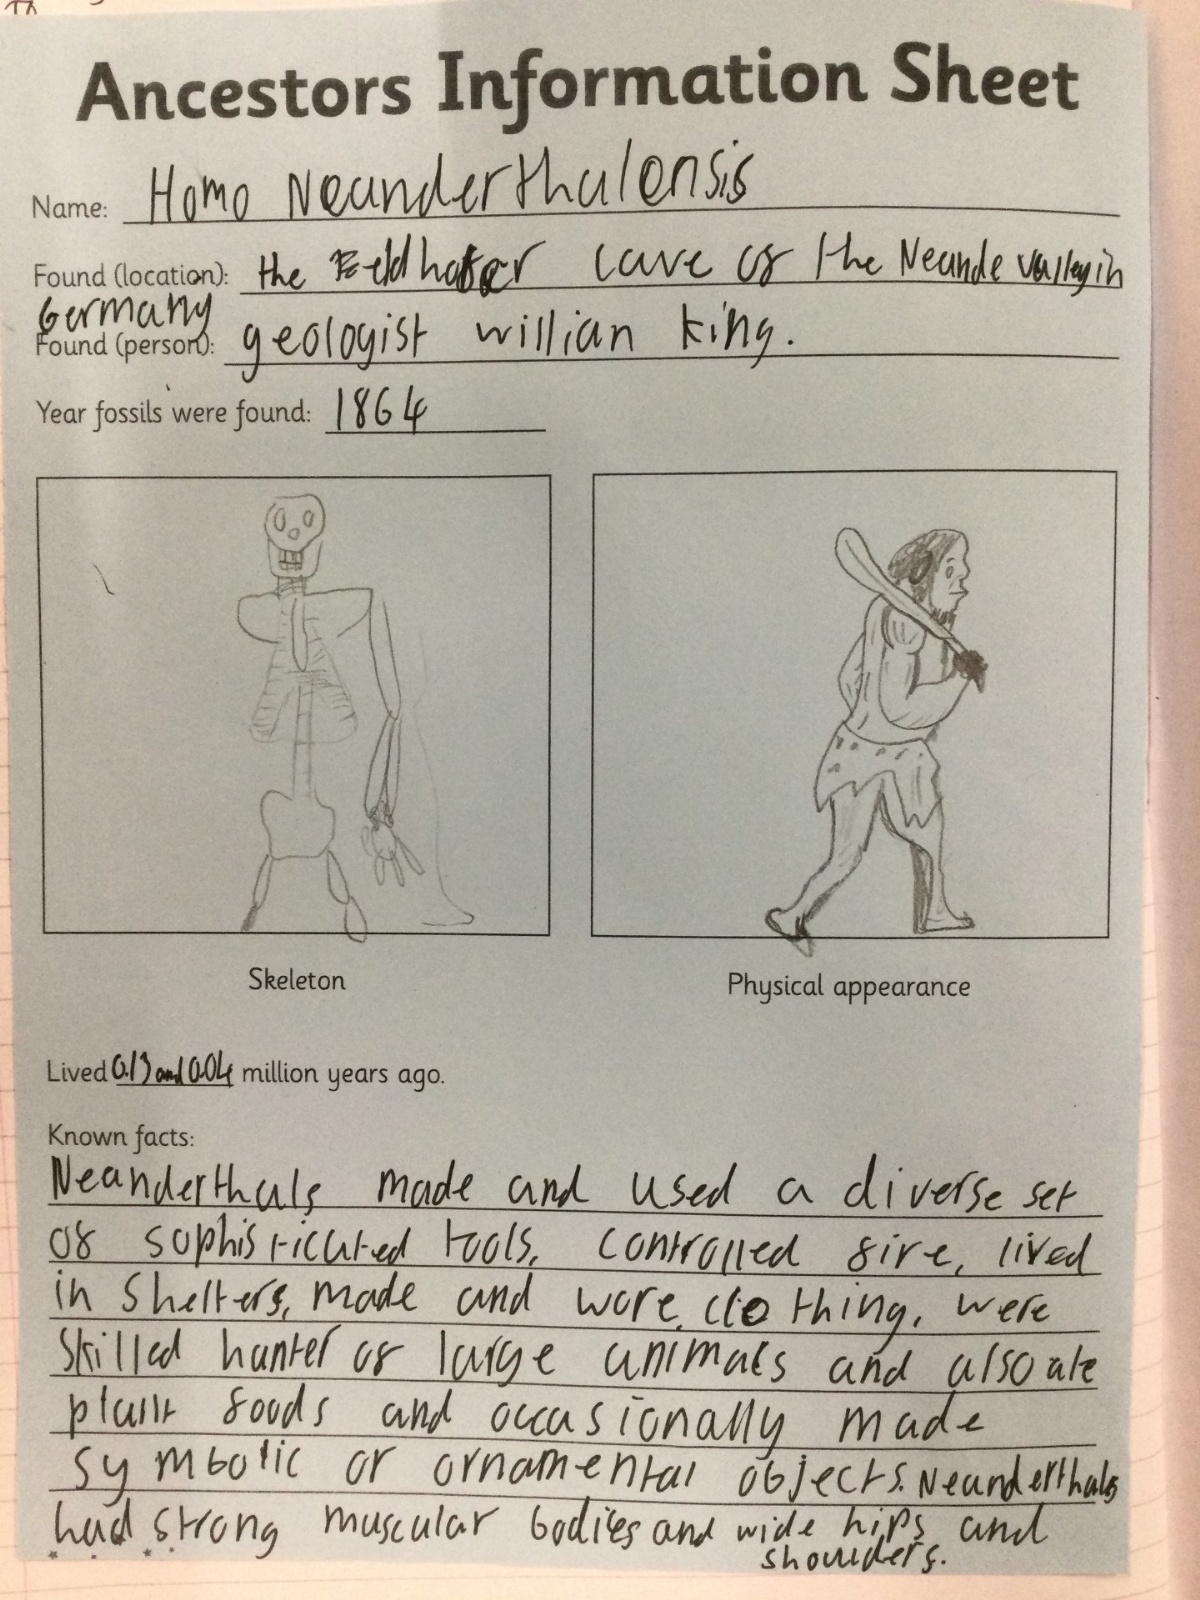 Ancestors Information Sheet
Name: Homo Neanderthalensis
Found (location): the Feldhofer cave of the Neande valley in
Germany
Found (person): geologist willian king.
Year fossils were found: 1864
Skeleton
Physical appearance
Lived 0.13 and 0.04 million years ago.
Known facts:
Neanderthals made and used a diverse set
of sophisticated tools, controlled fire, lived
in shelters, made and wore clothing, were
skilled hunter of large animals and also ate
plant foods and occasionally made
symbolic or ornamental objects. Neanderthals
had strong muscular bodies and wide hips and
shoulders.